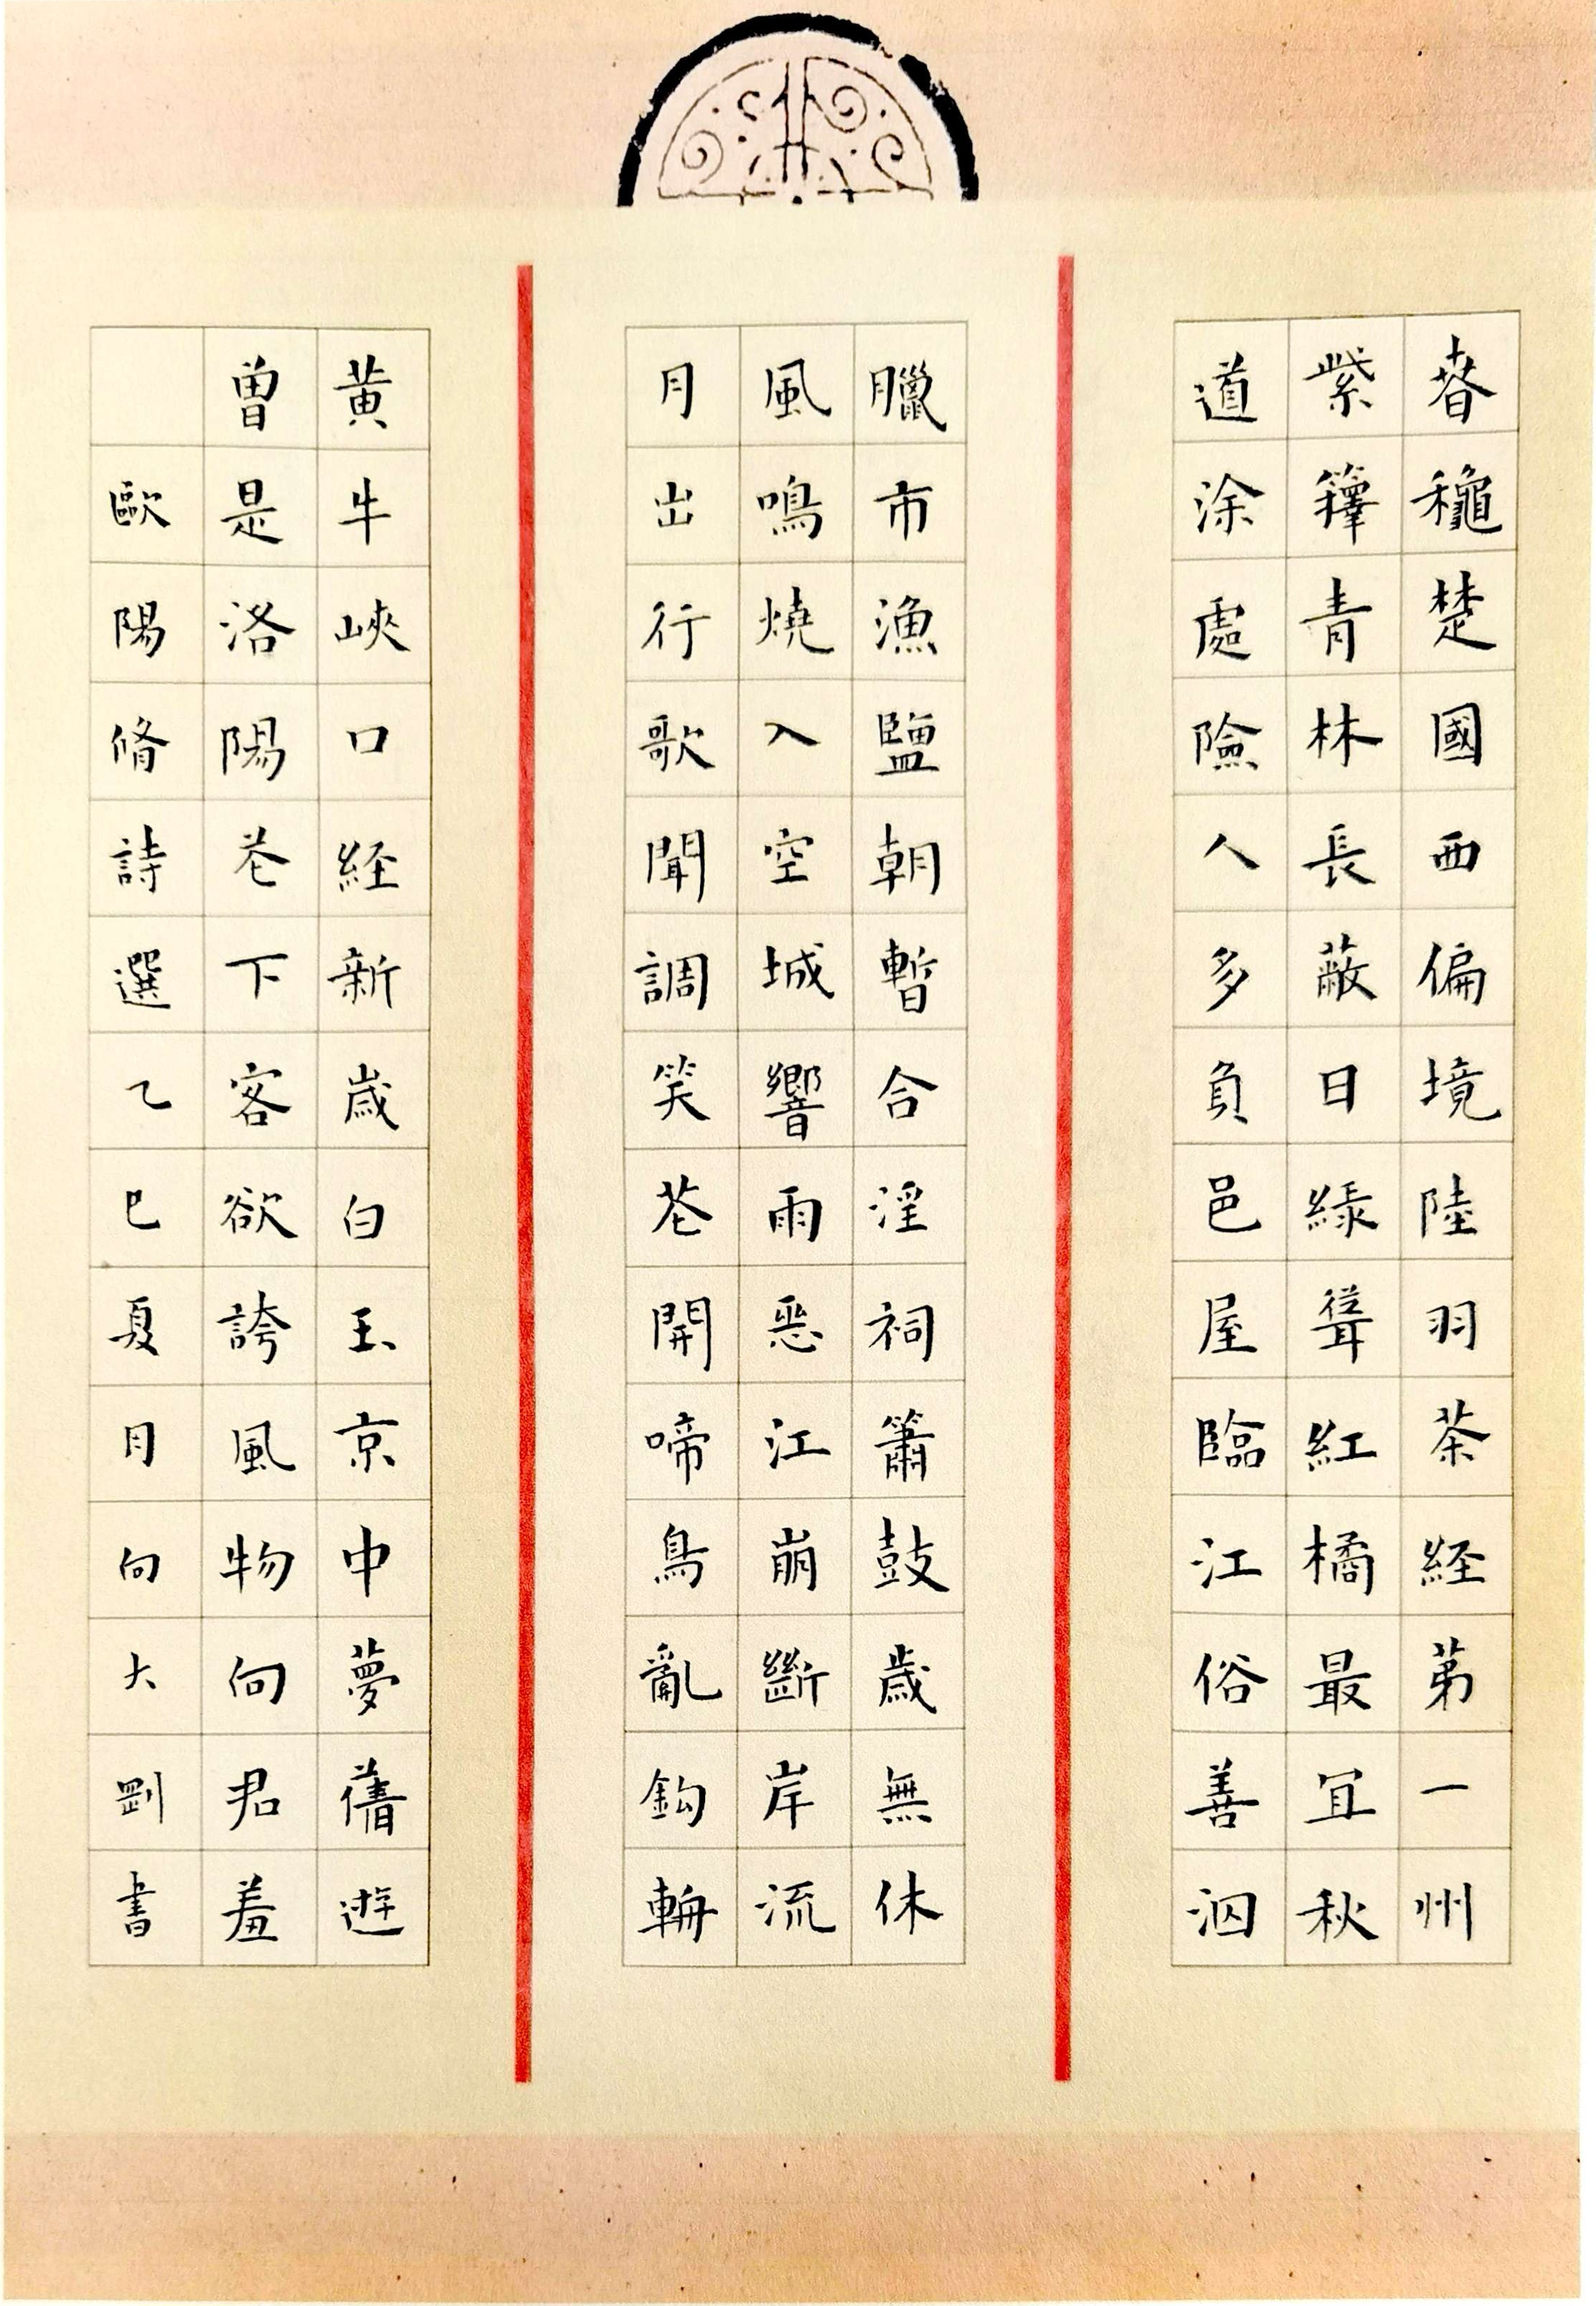 春秋楚國西偏境陸羽茶経苐一州
紫籜青林長蔽日緑葺紅橘最宜秋
道涂處險人多負邑屋臨江俗善泅
臘市漁鹽朝暫合淫祠簫鼓歳無休
風鳴燒入空城響雨惡江崩斷岸流
月出行歌聞調笑花開啼鳥亂鈎輈
黄牛峽口経新歳白玉京中夢舊遊
曽是洛陽花下客欲誇風物向君羞
歐陽脩詩選乙巳夏月向大剛書